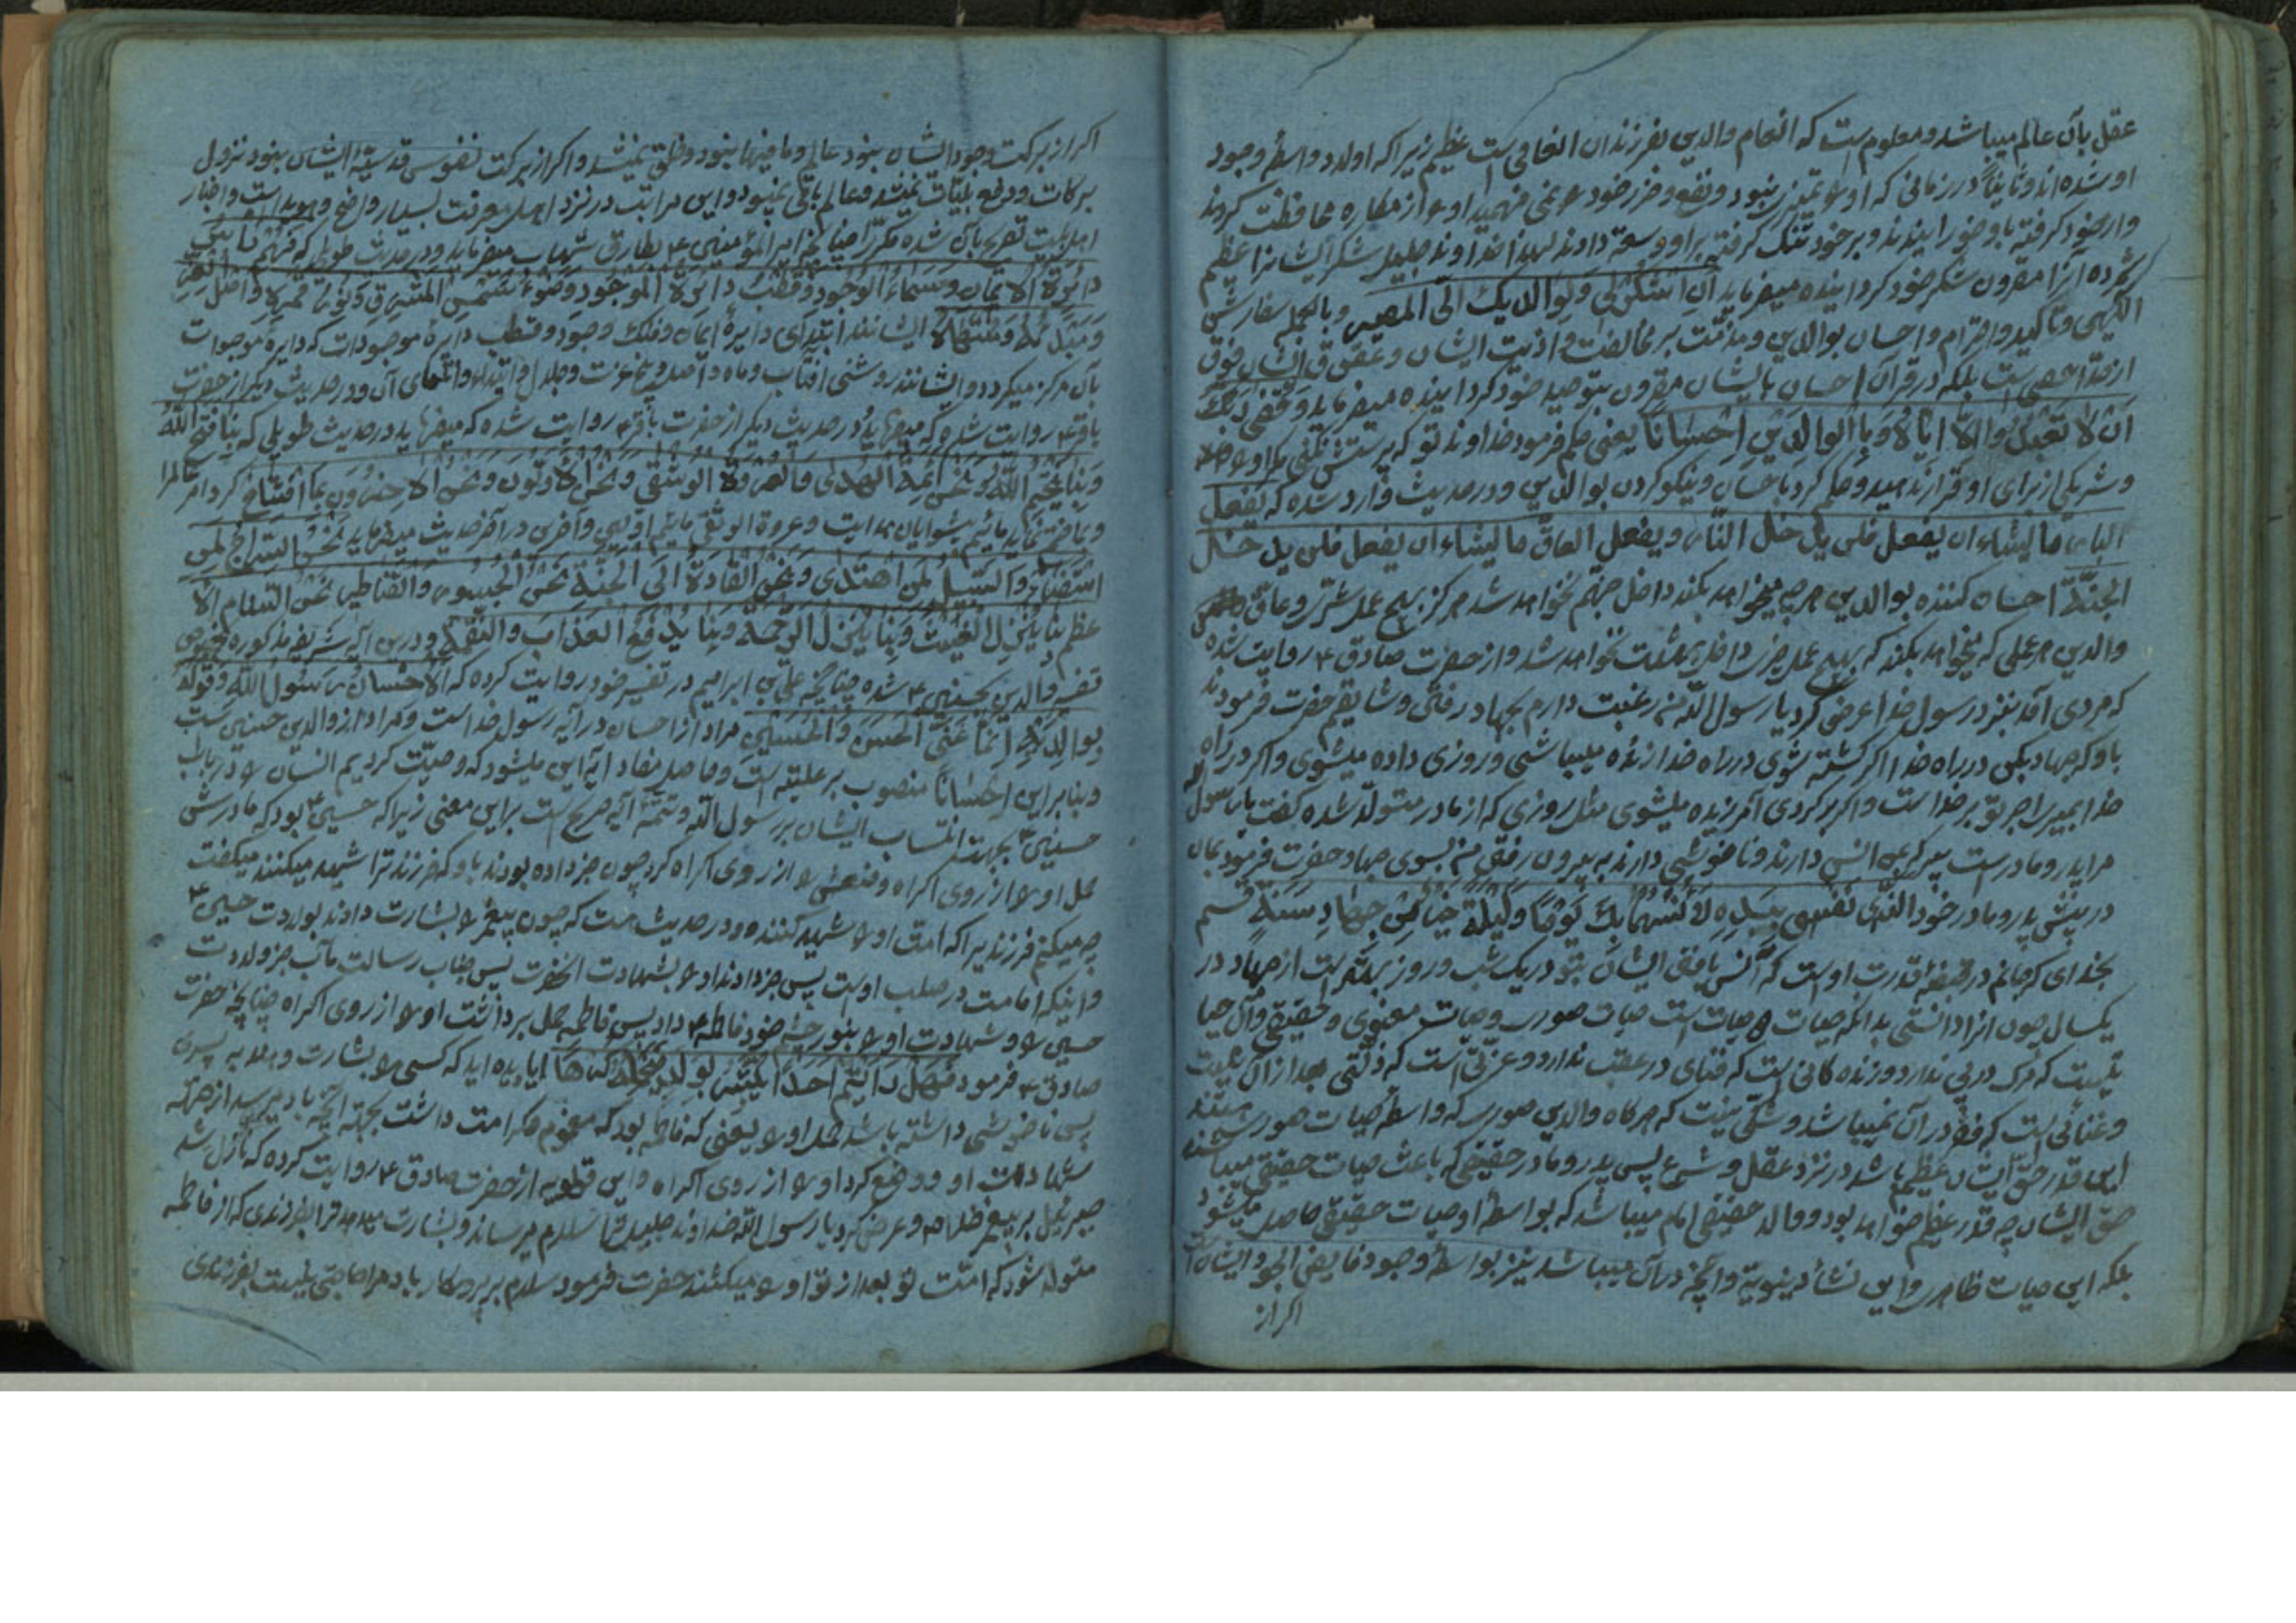 عقل بآن عالم میباشد و معلوم است که انعام والدین بفرزندان انعامی است عظیم زیرا که اولاد واسطهٔ وجود
او شده‌اند و ثانیاً در زمانی که او را تمیز نبود و نفع و ضرر خود را نمی فهمید او را از مکاره محافظت کردند
و از خود کرفته باو خورانیدند و بر خود تنک کرفته بر او وسعة دادند لهذا خداوند جلیل شکر ایشانرا عظیم
شمرده آنرا مقرون بشکر خود کردانیده میفرماید اَنِ اشْکُرْ لِی وَ لِوالِدَیْكَ اِلَیَّ الْمَصیر و بالجمله سفارش
الٓهی و تأکید و اقرام و احسان بوالدین و مذمّت بر مخالفت و اذیت ایشان و عقوق ایشان فوق
از حدّ احصی است بلکه در قرآن احسان بایشان مقرون بتوحید خود کردانیده میفرماید وَ قَضی رَبُّكَ
اَنْ لا تَعْبُدُوا اِلّا اِیّاهُ وَ بِالْوالِدَیْنِ اِحْسٰانًا یعنی حکم فرمود خداوند تو که پرستش نکنی مکر او را
و شریکی از برای او قرار ندهید و حکم کرد باحسان و نیکو کردن بوالدین و در حدیث وارد شده که یفعل
البارّ ما یشاء ان یفعل فلن یدخل النّار و یفعل العاقّ ما یشاء ان یفعل فلن یدخل
الجنّة احسان کننده بوالدین هر چه میخواهد بکند داخل جهنم نخواهد شد هرکز بهیچ عمل شرّ و عاقّ
والدین هر عملی که میخواهد بکند که بهیچ عمل خیر داخل بهشت نخواهد شد و از حضرت صادق ع روایت شده
که مردی آمد بنزد رسول خدا عرض کرد یا رسول الله من رغبت دارم بجهاد رفتن و شایقم حضرت فرمودند
باو که جهاد بکن در راه خدا اکر کشته شوی در راه خدا زنده میباشی و روزی داده میشوی و اکر در راه
خدا بمیری اجر تو بر خداست و اکر برکردی آمرزیده میشوی مثل روزی که از مادر متولّد شده کفت یا رسول الله
مرا پدر و مادریست پیر که بمن انس دارند و ناخوشی دارند به بیرون رفتن من بسوی جهاد حضرت فرمود بمان
در پیش پدر و مادر خود فوالّذی نَفْسی بِیَدِهِ لَاُنْسُهُما بِكَ یَوْمًا وَ لَیْلَةً خَیْرٌ مِنْ جِهٰادِ سَنَةٍ قسم
بخدای که جانم در قبضهٔ قدرت اوست که انس یافتن ایشان بتو در یک شب و روز بهتر است از جهاد در
یکسال چون انرا دانستی بدانکه حیات دو حیات است حیات صوری و حیات معنوی و حقیقی و آن حیا
تیست که مرک در پی ندارد و زنده کانی است که فنای در عقب ندارد و عزّتی است که ذلّتی بعد از آن نیست
و غنائی است که فقر در آن نمیباشد و شکّی نیست که هر کاه والدین صوری که واسطهٔ حیات صوری هستند
این قدر حقّ ایشان عظیم باشد در نزد عقل و شرع پس پدر و مادر حقیقی که باعث حیات حقیقی میباشند
حق ایشان چه قدر عظیم خواهد بود و والد حقیقی امام میباشد که بواسطهٔ او حیات حقیقی حاصل میشود
بلکه این حیات ظاهری و این نشأة دنیویة و آنچه در آن میباشد نیز بواسطهٔ وجود فایض الجود ایشان است
اکر از
اکر از برکت وجود ایشان نبود عالم و ما فیها نبود و خلق نمیشد و اکر از برکت نفوس قدسیّهٔ ایشان نبود نزول
برکات و دفع بلیّات نمیشد و عالم باقی نمیبود و این مراتب در نزد اهل معرفت بسیار واضح و هویداست و اخبار
اهلبیت تصریح بآن شده مکرّراً چنانچه امیر المؤمنین ع بطارق شهاب میفرماید و در حدیث طویل که فَهُمْ
دائِرَةُ الْایمانِ وَ سَماءُ الْوُجُودِ وَ قُطْبُ دائِرَةِ الْمَوْجُودِ وَ ضَوْءُ شَمْسِ الشَّرَفِ وَ نُورُ قَمَرِهِ وَ اَصْلُ الْعِزِّ
وَ مَبْدَئُهُ وَ مُنْتَهاهُ ایشانند ابتدای دایرهٔ ایمان و فلک وجود و قطب دایرهٔ موجودات که دایرهٔ موجودات
بآن مرکز میکردد و ایشانند روشنی آفتاب و ماه و اصل عزت و جلال و ابتداء و انتهای آن و در حدیث دیکر از حضرت
باقر ع روایت شده که میفرماید در حدیث دیکر از حضرت باقر ع روایت شده که میفرماید در حدیث طویلی که بِنا فَتَحَ اللهُ
وَ بِنا یَخْتِمُ اللهُ وَ نَحْنُ اَئِمَّةُ الْهُدیٰ وَ الْعُرْوَةُ الْوُثْقی وَ نَحْنُ الْاَوَّلُونَ وَ نَحْنُ الْاٰخِرُونَ بما افتتاح کرد امر عالم را
و بما ختم نماید مائیم پیشوایان هدایت و عروة الوثقی مائیم اولین و آخرین در آخر حدیث میفرماید نَحْنُ السِّراجُ لِمَنِ
اسْتَضاءَ وَ السَّبیلُ لِمَنِ اهْتَدیٰ وَ نَحْنُ الْقادَةُ اِلَی الْجَنَّةِ نَحْنُ الْجُسُورُ وَ الْقَناطیرُ نَحْنُ السَّنامُ الْاَ
عْظَمُ بِنا یُنْزِلُ الْغَیْثَ وَ بِنا یُنْزِلُ الرَّحْمَةَ وَ بِنا یَدْفَعُ الْعَذابَ وَ النَّقْمَةَ و در این آیهٔ شریفهٔ مذکوره بخصوص
تفسیر والدین بحسنین ع شده چنانچه علی بن ابراهیم در تفسیر خود روایت کرده که اَلْاِحْسانُ رَسُولُ اللهِ وَ قَوْلُهُ
بِوالِدَیْهِ اِنَّما عَنَی الْحَسَنَ وَ الْحُسَیْنَ مراد از احسان در آیه رسول خداست و مراد از والدین حسنین است
و بنابراین اِحْسانًا منصوب بر علیّة است و حاصل مفاد آیه این میشود که وصیّت کردیم انسان را در باب
حسنین ع بجهت انتساب ایشان بر رسول الله و تتمّهٔ آیه صریح است بر این معنی زیرا که حسین ع بود که مادرش
حمل او را از روی اکراه و وضعش را از روی اکراه کرد چون خبر داده بودند باو که فرزند ترا شهید میکنند میکفت
چه میکنم فرزندیرا که امت او را شهید کننده و در حدیث است که چون پیغمبر را بشارت دادند بولادت حسین ع
و اینکه امامت در صلب اوست پس خبر دادند او را بشهادت آنحضرت پس جناب رسالت مآب خبر ولادت
حسین را و شهادت او را بنور چشم خود فاطمه ع داد پس فاطمه حمل برداشت او را از روی اکراه چنانچه حضرت
صادق ع فرمود فَهَلْ رَاَیْتُمْ اَحَدًا یُبَشَّرُ بِوَلَدٍ فَیَحْمِلُهُ کُرْهًا آیا دیده اید که کسی را بشارت دهند به پسری
پس ناخوشی داشته باشد حمل او را یعنی که فاطمه بود که مغموم و کرامت داشت بجهة آنچه باو میرسد از جهة
شهادت او و وضع کرد او را از روی اکراه و ابن قولویه از حضرت صادق ع روایت کرده که نازل شد
جبرئیل بر پیغمبر خدا ص و عرض کرد یا رسول الله خداوند جلیل ترا سلام میرساند و بشارت میدهد ترا بفرزندی که از فاطمه
متولد شود که امّت تو بعد از تو او را میکشند حضرت فرمود سلام بر پروردکار باد مرا حاجتی نیست بفرزندی